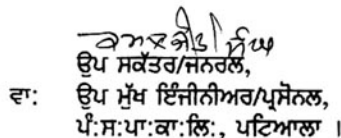 ਉਪ ਸਕੱਤਰ/ਜਨਰਲ,
ਵਾ: ਉਪ ਮੁੱਖ ਇੰਜੀਨੀਅਰ/ਪ੍ਰਸੋਨਲ,
ਪੰ:ਸ:ਪਾ:ਕਾ:ਲਿ:, ਪਟਿਆਲਾ ।